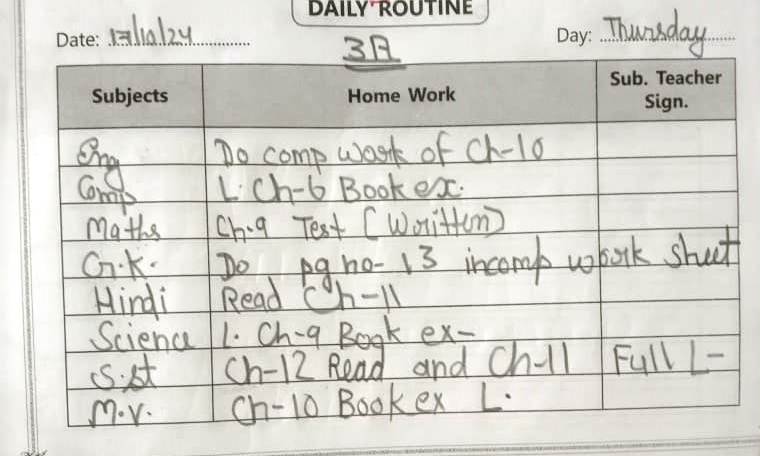 DAILY ROUTINE
Date: 17/10/24 Day: Thursday
3A
Subjects Home Work Sub. Teacher Sign.
Eng Do comp work of Ch-10
Comp L. Ch-6 Book ex.
Maths Ch-9 Test (Written)
G.K. Do pg no- 13 incomp work sheet
Hindi Read Ch-11
Science L. Ch-9 Book ex-
S.st Ch-12 Read and Ch-11 Full L-
M.V. Ch-10 Book ex L.